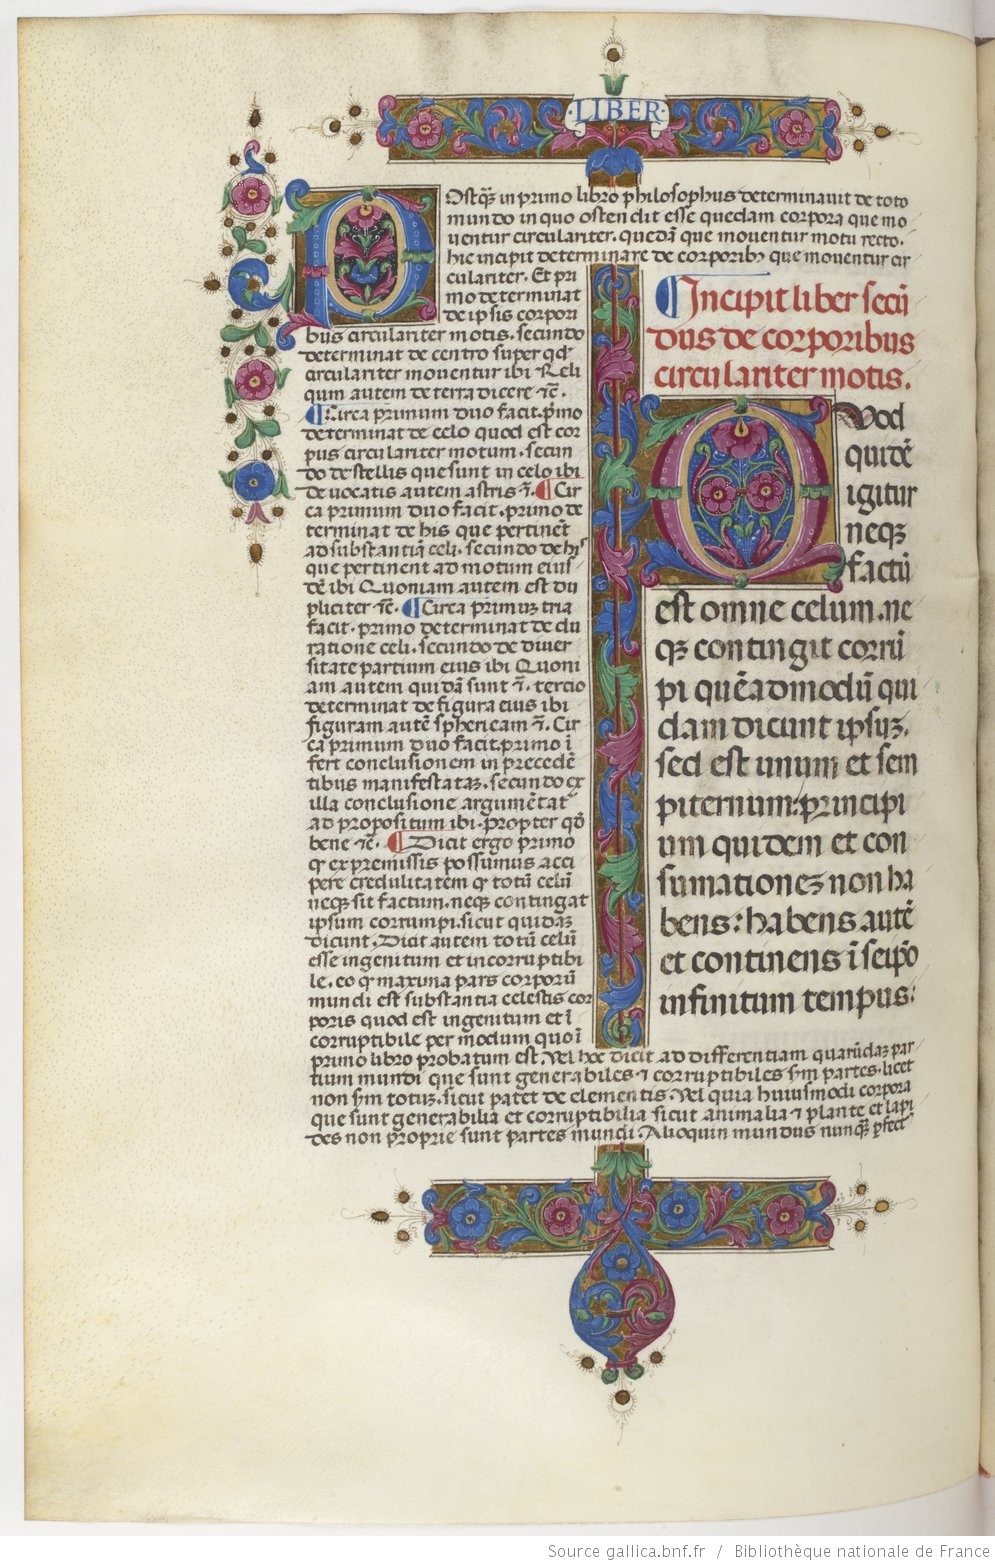 LIBER
Ostqȝ in primo libro philosophus determinauit de toto
mundo in quo ostendit esse quedam corpora que mo
uentur circulariter. quedā que mouentur motu recto.
hic incipit determinare de corporibȝ que mouentur cir
culariter. Et pri
mo determinat
de ipsis corpori
bus circulariter motis. secundo
determinat de centro super qđ
circulariter mouentur ibi Reli
quum autem de terra dicere ⁊c̄.
¶Circa primum duo facit. p̄mo
determinat de celo quod est cor
pus circulariter motum. secun
do de stellis que sunt in celo ibi
de uocatis autem astris ⁊̄. ¶Cir
ca primum duo facit. primo de
terminat de his que pertinēt
ad substantiā celi. secundo de hịs
que pertinent ad motum eius
dē ibi Quoniam autem est du
pliciter ⁊c̄. ¶Circa primuȝ tria
facit. primo determinat de du
ratione celi. secundo de diuer
sitate partium eius ibi Quoni
am autem quidā sunt ⁊̄. tercio
determinat de figura eius ibi
figuram autē sphericam ⁊̄. Cir
ca primum duo facit. primo ī
fert conclusionem in precedē
tibus manifestataȝ. secundo ex
illa conclusione argumētat
ad propositum ibi. Propter qđ
bene ⁊c̄. ¶Dicit ergo primo
ꝙ ex premissis possumus acci
pere credulitatem ꝙ totū celū
neqȝ sit factum. neqȝ contingat
ipsum corrumpi. sicut quidaȝ
dicunt. Dicit autem totū celū
esse ingenitum et incorruptibi
le. eo ꝙ maxima pars corporū
mundi est substantia celestis cor
poris quod est ingenitum et ī
corruptibile per modum quo ī
primo libro probatum est. Vel hoc dicit ad differentiam quarūdaȝ par
tium mundi que sunt generabiles ⁊ corruptibiles sm̄ partes. licet
non sm̄ totuȝ. sicut patet de elementis. Vel quia huiusmodi corpora
que sunt generabilia et corruptibilia sicut animalia ⁊ plante et lapi
des non proprie sunt partes mundi. Alioquin mundus nunqȝ ꝑfect
¶Incipit liber secū
dus de corporibus
circulariter motis.
Quod
quidē
igitur
neqȝ
factū
est omne celum. ne
qȝ contingit corrū
pi quēadmodū qui
dam dicunt ipsuȝ.
sed est unum et sem
piternum: principi
um quidem et con
sumationeȝ non ha
bens: habens autē
et continens ī seip̄o
infinitum tempus:
Source gallica.bnf.fr / Bibliothèque nationale de France